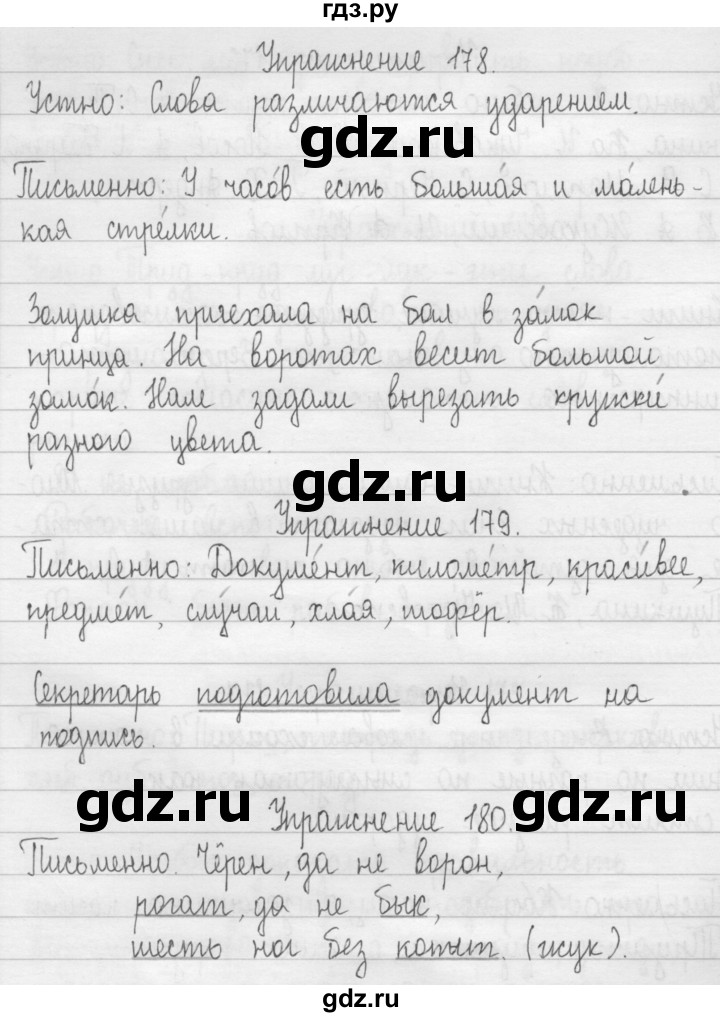 гдз.ру
Упражнение 178.
Устно: Слова различаются ударением.
gdz.ru
Письменно: У часо́в есть больша́я и ма́лень-
кая стре́лки.
Золушка приехала на бал в за́мок
принца. На воротах весит большой
замо́к. Нам задали вырезать кружки́
разного цвета.
gdz.ru
Упражнение 179.
Письменно: Докуме́нт, киломе́тр, краси́вее,
предме́т, слу́чай, хла́я, шофёр.
Секретарь подготовила документ на
подпись.
gdz.ru
gdz.ru
Упражнение 180.
Письменно. Чёрен, да не ворон,
рогат, да не бык,
шесть ног без копыт. (жук).
gdz.ru